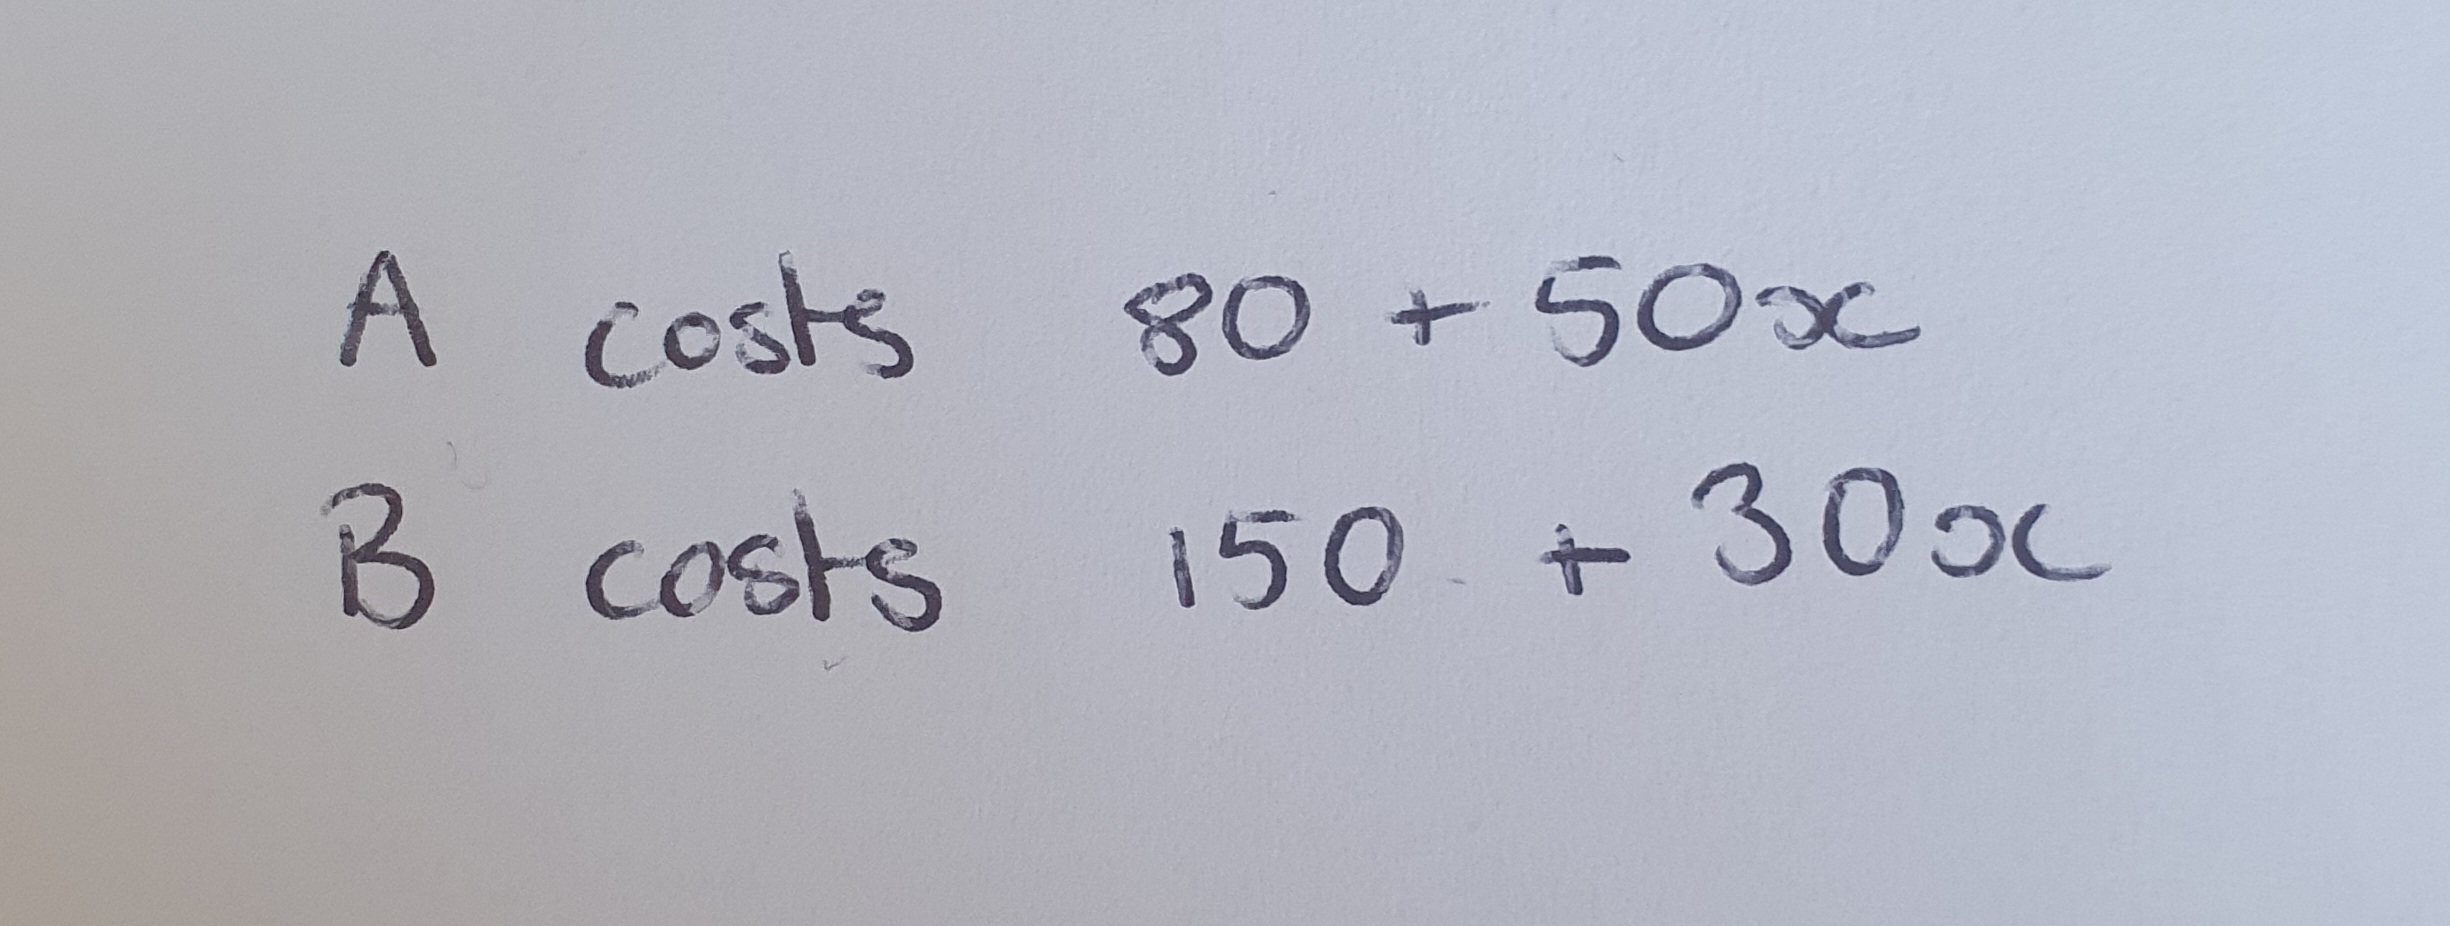 A costs 80 + 50x
B costs 150 + 30x